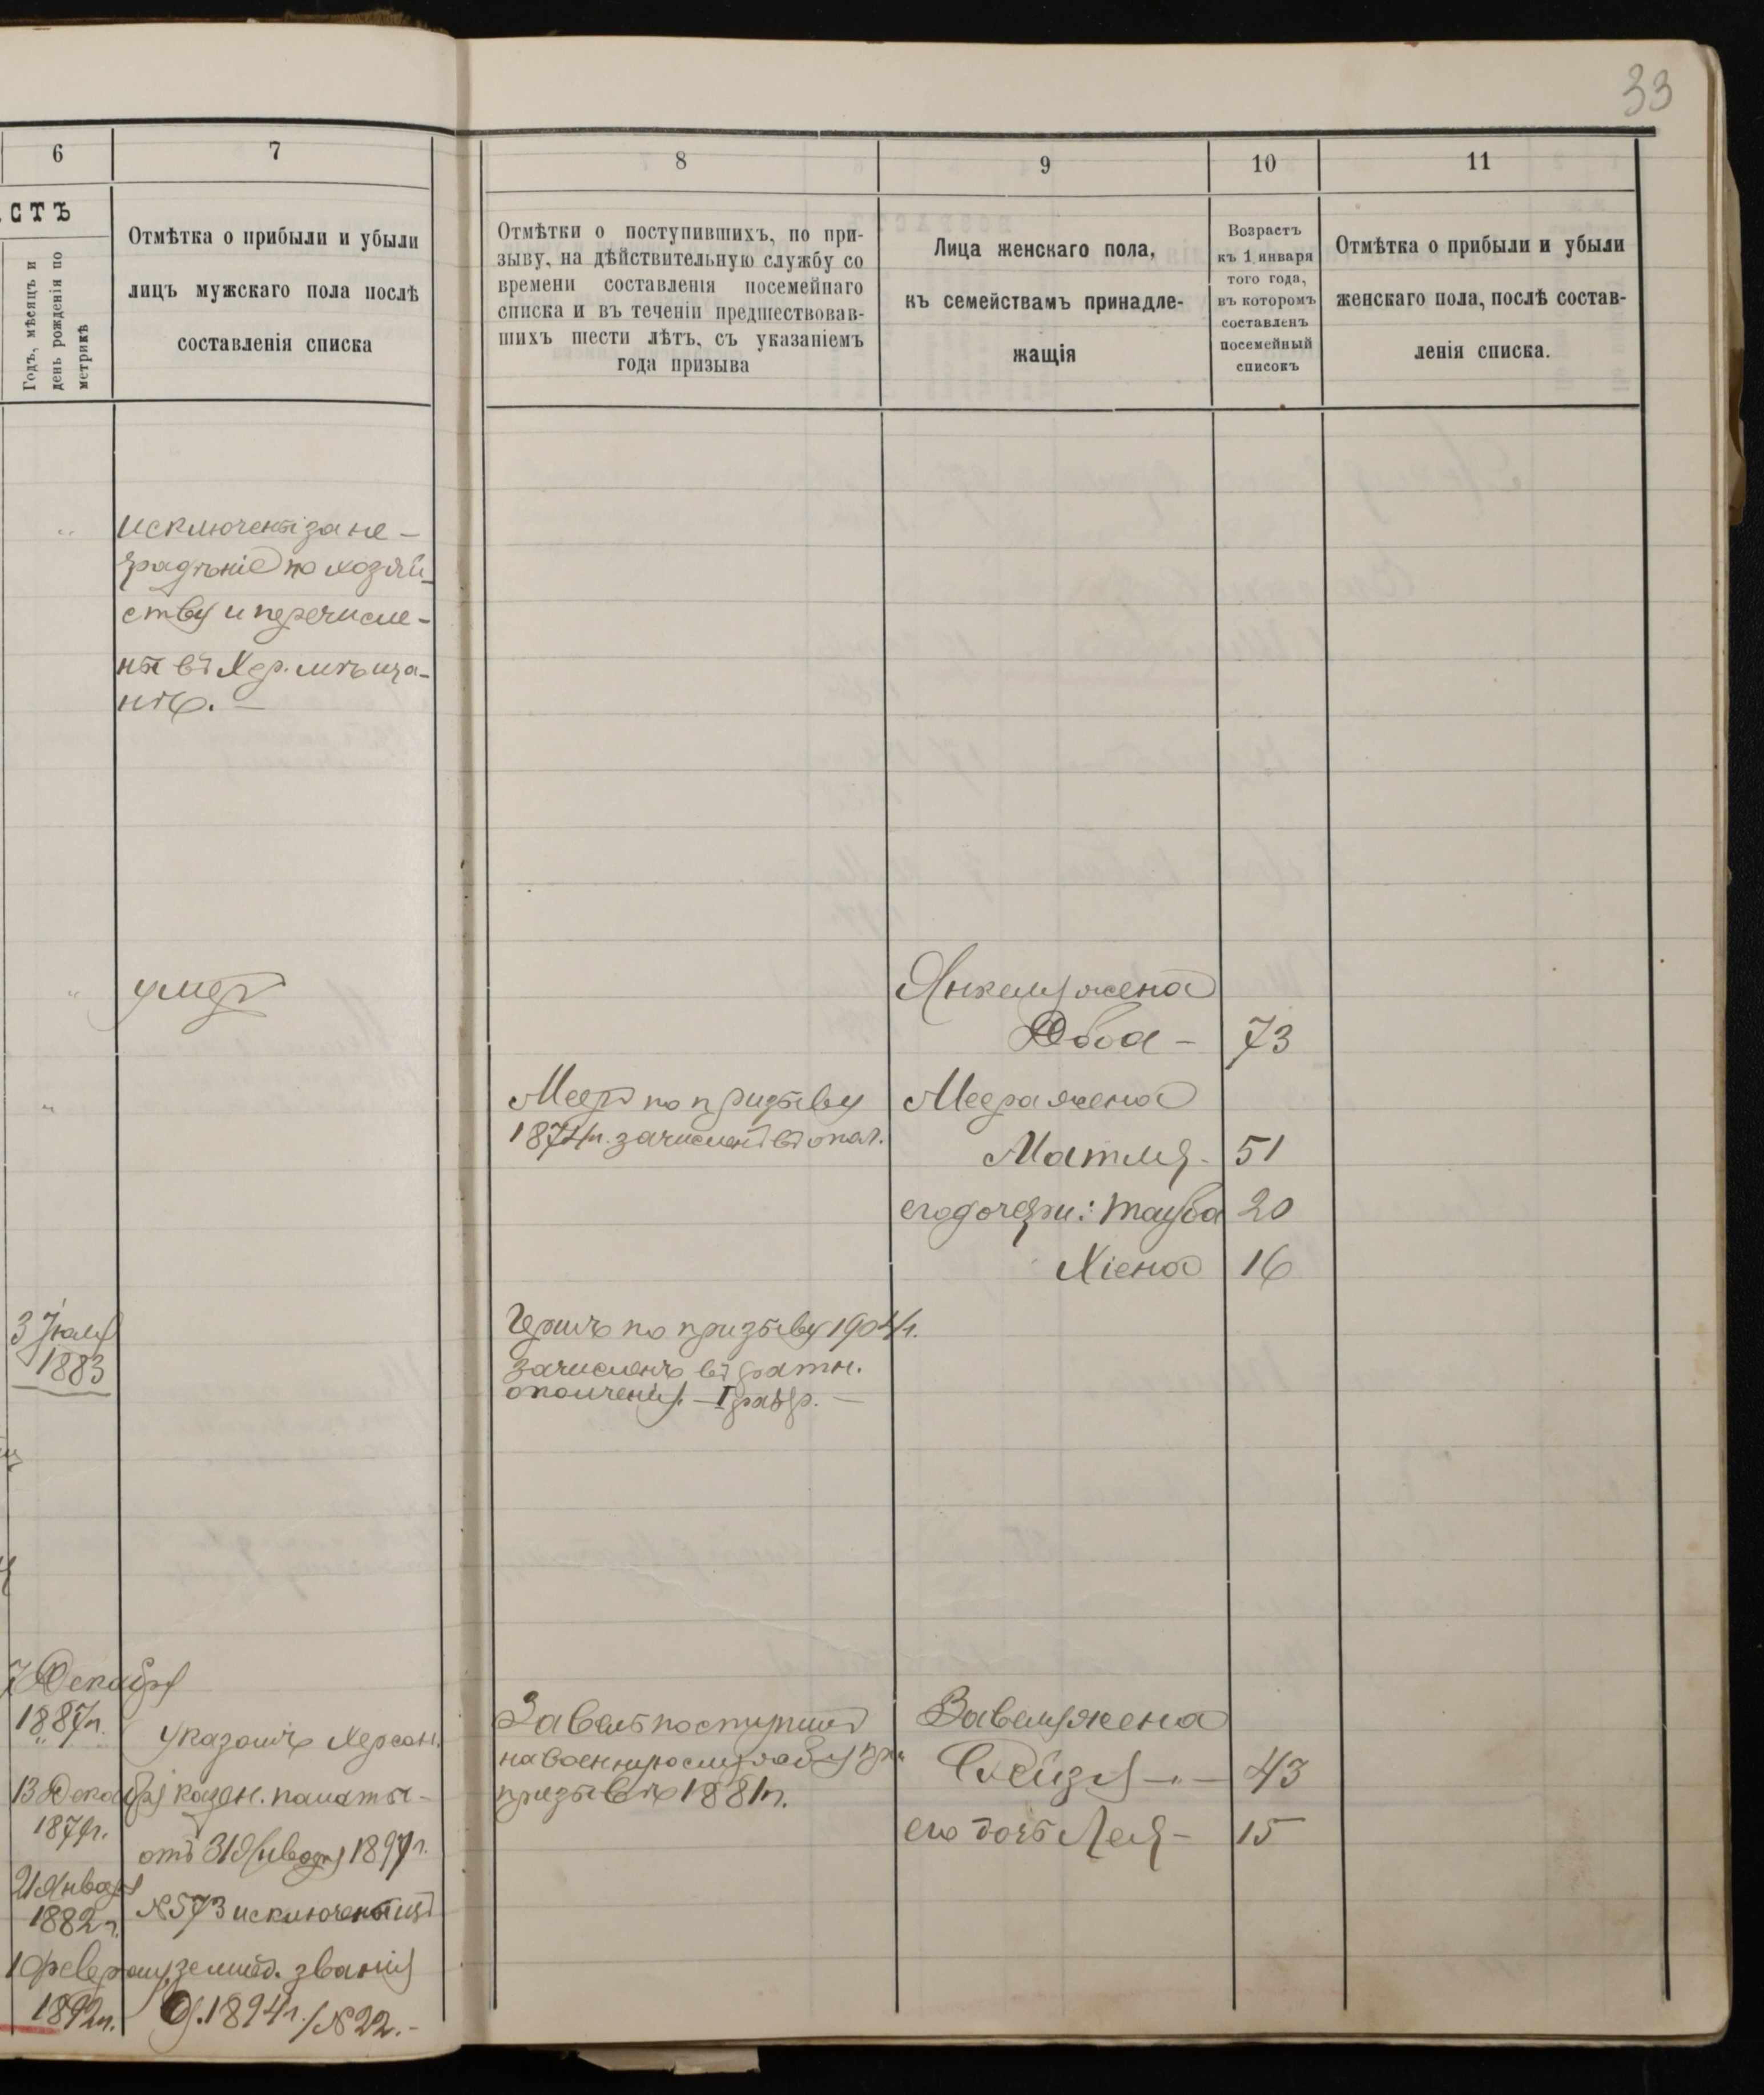 33
6
7
8
9
10
11
СТЪ
Годъ, мѣсяцъ и
день рожденія по
метрикѣ
Отмѣтка о прибыли и убыли
лицъ мужскаго пола послѣ
составленія списка
Отмѣтки о поступившихъ, по при-
зыву, на дѣйствительную службу со
времени составленія посемейнаго
списка и въ теченіи предшествовав-
шихъ шести лѣтъ, съ указаніемъ
года призыва
Лица женскаго пола,
къ семействамъ принадле-
жащія
Возрастъ
къ 1 января
того года,
въ которомъ
составленъ
посемейный
списокъ
Отмѣтка о прибыли и убыли
женскаго пола, послѣ состав-
ленія списка.
исключены за не-
радѣніе по хозяй-
ству и перечисле-
ны въ Хер. мѣща-
нѣ.
умеръ
Янкеля жена
Двоя - 73
Мееръ по призыву
1874 г. зачисленъ въ опол.
Меера жена
Матля - 51
его дочери: Тауба 20
Хіена 16
3 Іюля
1883
Гершъ по призыву 1904 г.
зачисленъ въ ратн.
ополченія. - I разр. -
7 Декабря
1887 г.
13 Декабря
187 г.
21 Января
1882 г.
1 Февраля
1892 г.
Указомъ Херсон.
казен. палаты -
отъ 31 Января 1897 г.
№ 573 исключены изъ
землед. званія
1894 г. / № 22. -
Завель поступилъ
на военную службу при
призывѣ 1881 г.
Завеля жена
Рейзя - 43
его дочь Лея - 15